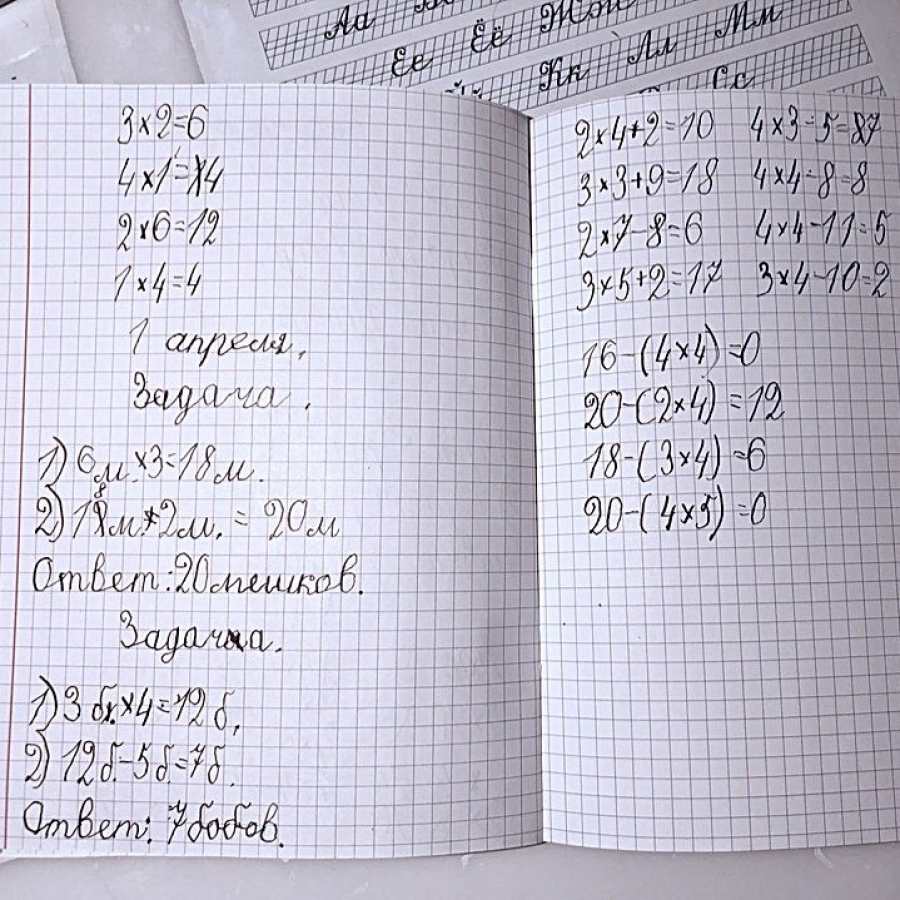 Аа
Ее Ёё Жж
Кк Лл Мм
Сс
3×2=6
4×1=4
2×6=12
1×4=4
1 апреля.
Задача.
1) 6м.×3=18м.
2) 18м.+2м. = 20м
Ответ: 20 мешков.
Задача.
1) 3 б.×4=12 б.
2) 12 б.-5 б.=7 б.
Ответ: 7 бобов.
2×4+2=10 4×3-5=7
3×3+9=18 4×4-8=8
2×7-8=6 4×4-11=5
3×5+2=17 3×4-10=2
16-(4×4)=0
20-(2×4)=12
18-(3×4)=6
20-(4×5)=0